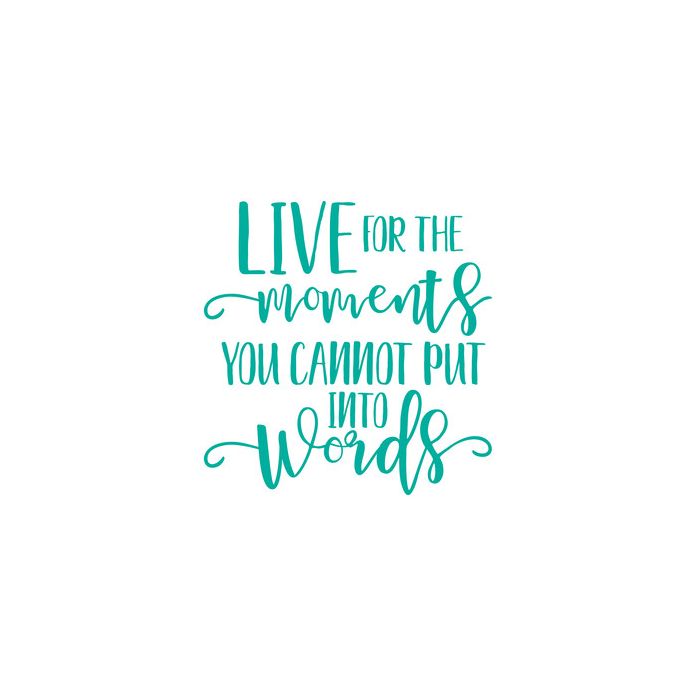 LIVE FOR THE
moments
YOU CANNOT PUT
INTO
Words